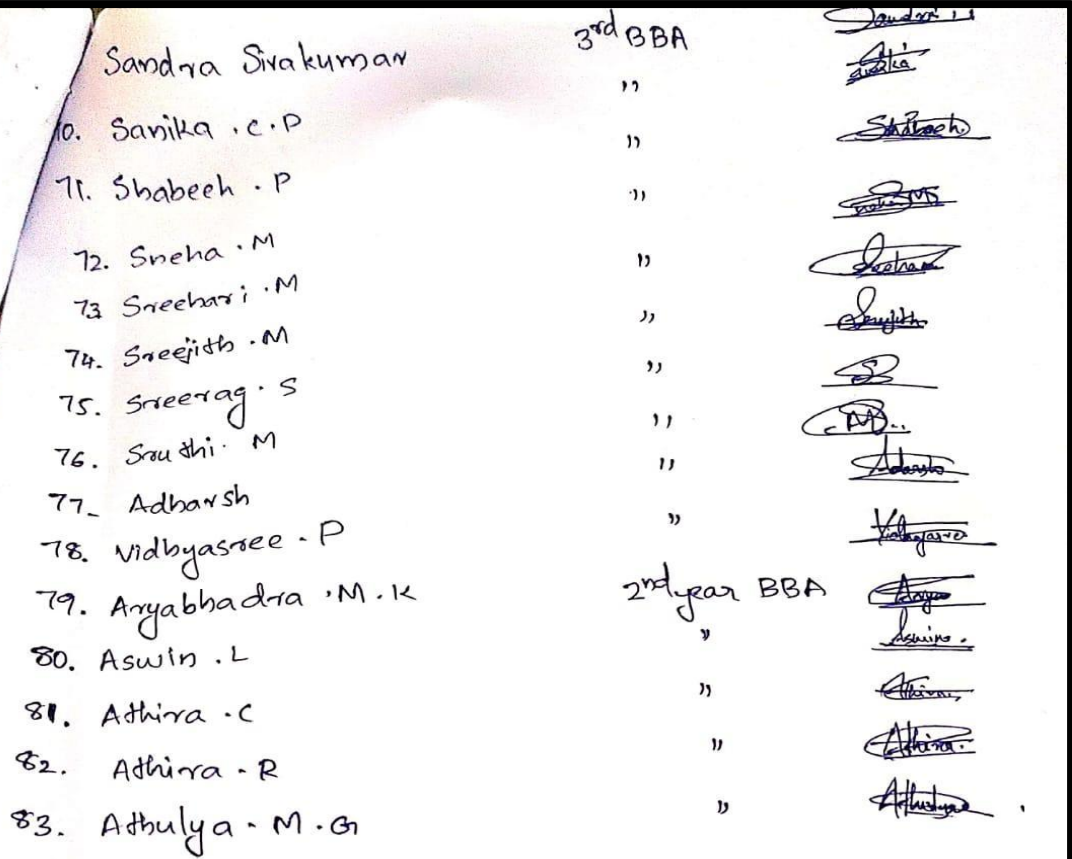 Sandra Sivakumar 3rd BBA Sandra
10. Sanika . C . P ,,
71. Shabeeh . P ,, Shabeeh
72. Sneha . M ,, Sneha M
73 Sreehari . M ,,
74. Sreejith . M ,, Sreejith
75. Sreerag . S ,, S
76. Sruthi . M ,,
77- Adharsh ,, Adarsh
78. Vidhyasree . P ,, Vidhyasree
79. Aryabhadra . M . K 2nd year BBA Arya
80. Aswin . L ,, Aswin.
81. Athira . C ,, Athira
82. Athira - R ,, Athira.
83. Athulya - M . G ,, Athulya